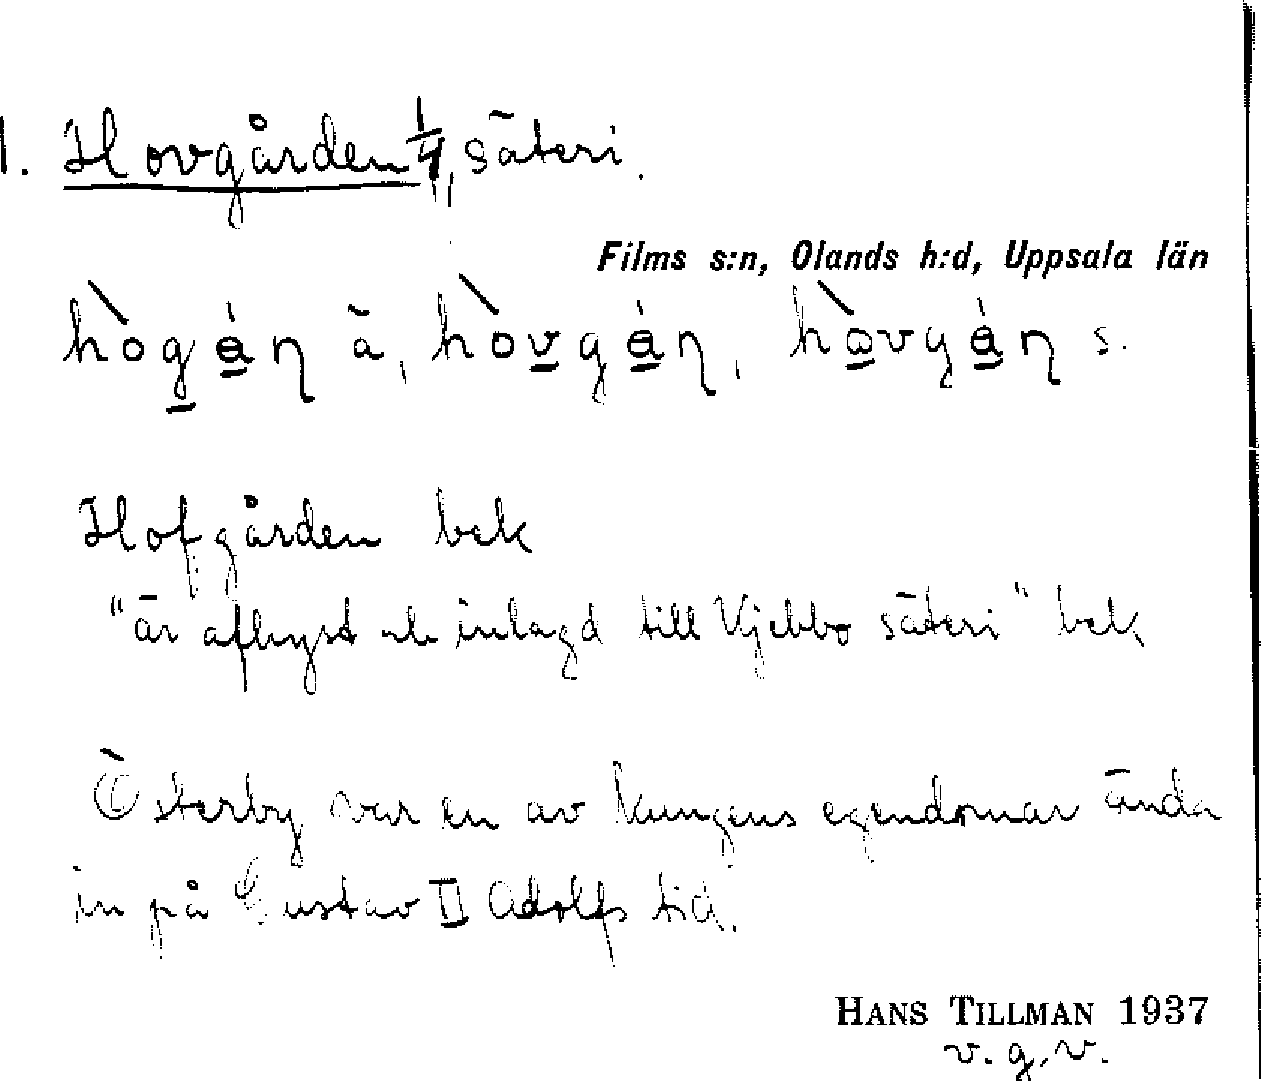 1. Hovgården 1/4, säteri.
Films s:n, Olands h:d, Uppsala län
s.
Hofgården bek
"är afhyst och inlagd till Vjebbo säteri" bek
Österby var en av kungens egendomar ända
in på Gustav II Adolfs tid.
HANS TILLMAN 1937
v.g.v.